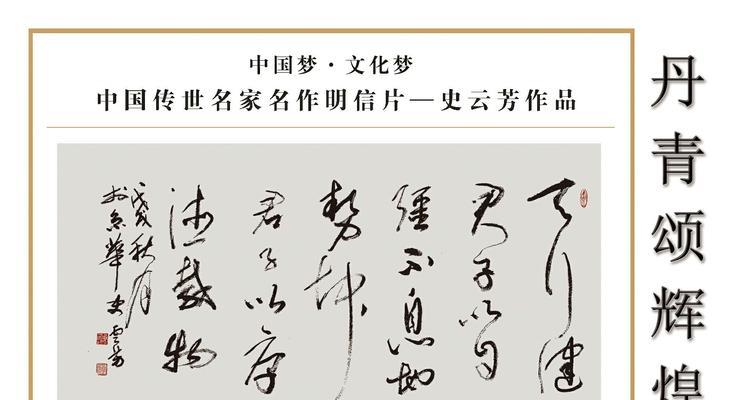 中国梦·文化梦
中国传世名家名作明信片—史云芳作品
天行健
君子以自
强不息地
势坤
君子以厚
德载物
戊戌秋月
于京华史云芳
丹青颂辉煌